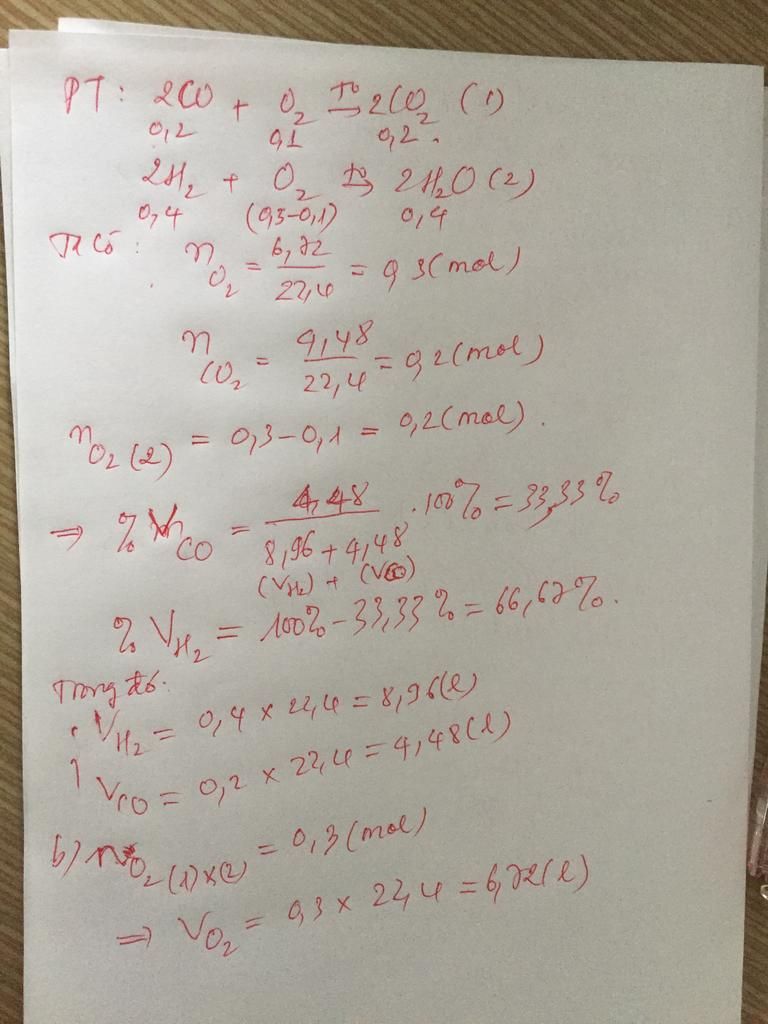 PT: 2CO + O₂ t⁰→ 2CO₂ (1)
0,2 0,1 0,2.
2H₂ + O₂ t⁰→ 2H₂O (2)
0,4 (0,3-0,1) 0,4
Ta có: n O₂ = 6,72 / 22,4 = 0,3 (mol)
n CO₂ = 4,48 / 22,4 = 0,2 (mol)
n O₂ (2) = 0,3 - 0,1 = 0,2 (mol).
⇒ % V CO = 4,48 / 8,96 + 4,48 . 100% = 33,33%
(V H₂) + (V CO)
% V H₂ = 100% - 33,33% = 66,67%.
Trong đó:
V H₂ = 0,4 × 22,4 = 8,96 (l)
V CO = 0,2 × 22,4 = 4,48 (l)
b) n O₂ (1)×(2) = 0,3 (mol)
⇒ V O₂ = 0,3 × 22,4 = 6,72 (l)